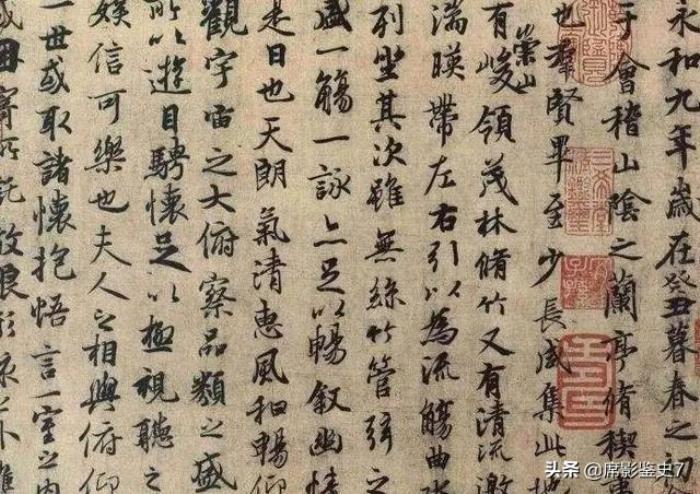 永和九年歲在癸丑暮春之初
于會稽山陰之蘭亭脩稧事
也羣賢畢至少長咸集此地
有崇山峻領茂林脩竹又有清流激
湍暎帶左右引以為流觴曲水
列坐其次雖無絲竹管弦之
盛一觴一詠亦足以暢敘幽情
是日也天朗氣清惠風和暢仰
觀宇宙之大俯察品類之盛
所以遊目騁懷足以極視聽之
娛信可樂也夫人之相與俯仰
一世或取諸懷抱悟言一室之內
或因寄所託放浪形骸之外雖
三希堂精鑒璽
宜子孫
头条 @席影鉴史7